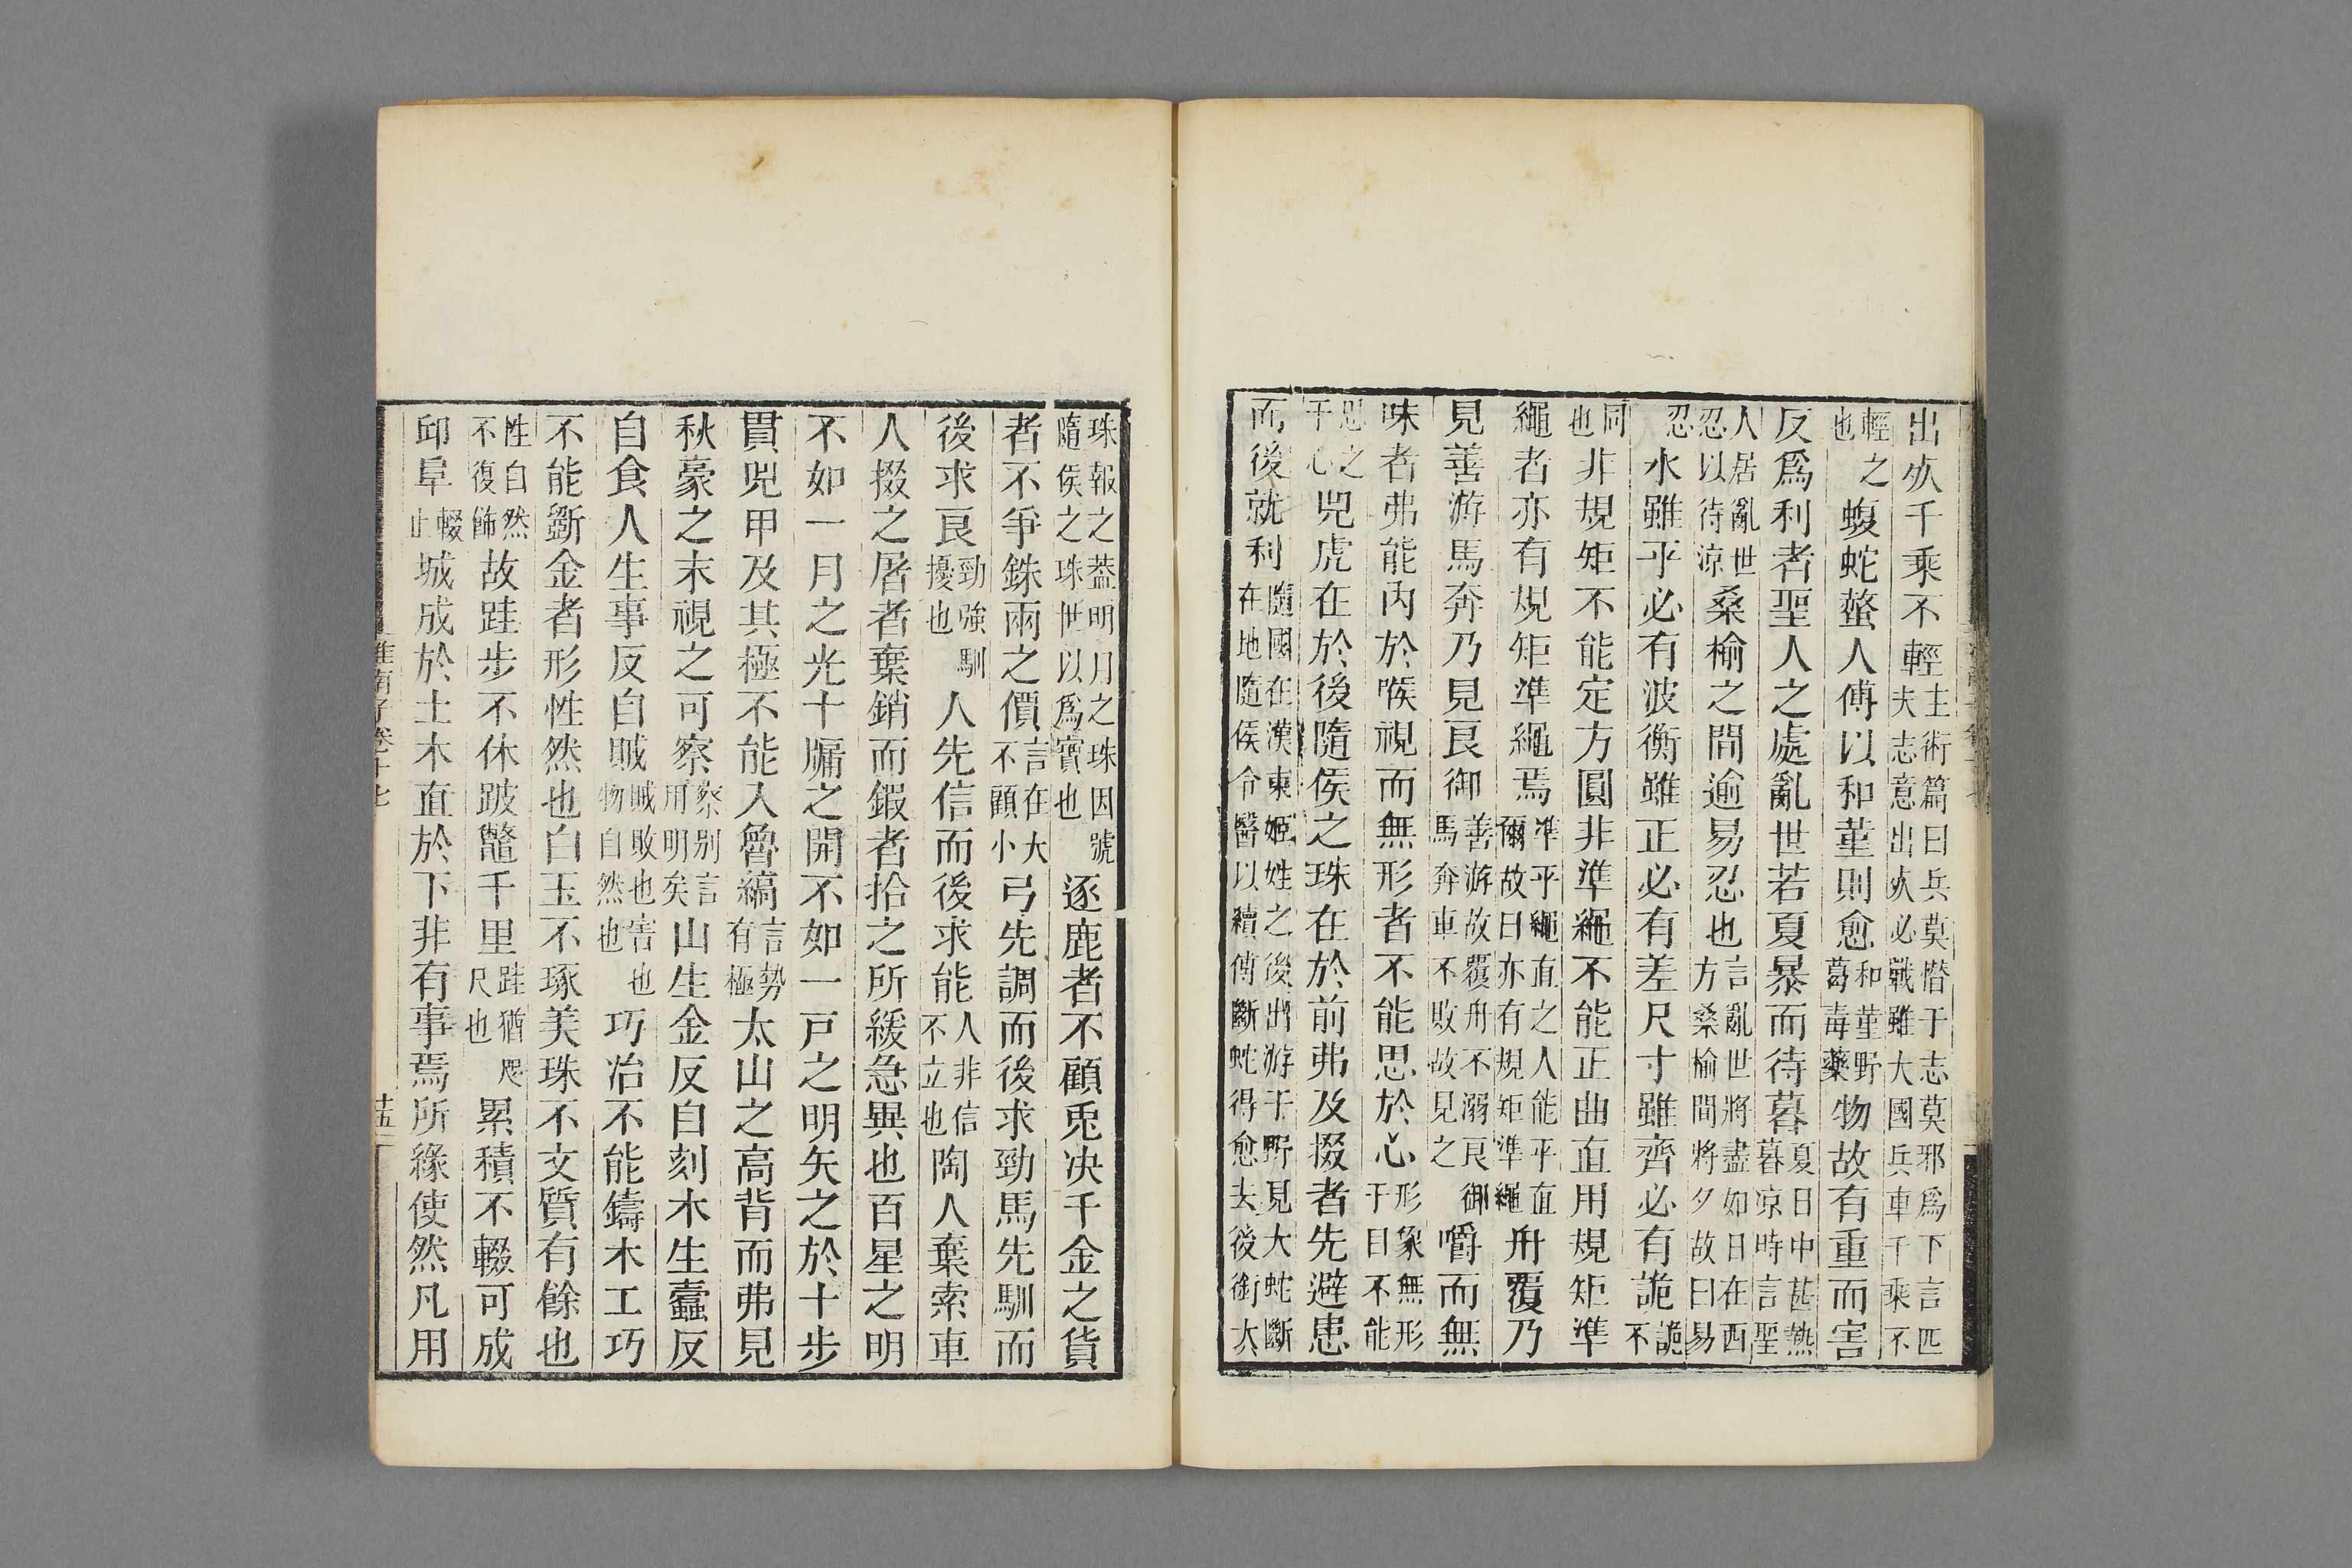 出㳄千乘不輕主術篇曰兵莫憯于志莫邪爲下言匹夫志意出㳄必戰雖大國兵車千乘不
輕之也蝮蛇螫人傅以和菫則愈和菫野葛毒藥物故有重而害
反爲利者聖人之處亂世若夏暴而待暮夏日中甚熱暮涼時言聖
人居亂世忍以待涼桑榆之間逾易忍也言亂世將盡如日在西方桑榆間將夕故曰易
忍水雖平必有波衡雖正必有差尺寸雖齊必有詭詭不
同也非規矩不能定方圓非準繩不能正曲直用規矩準
繩者亦有規矩準繩焉準平繩直之人能平直爾故曰亦有規矩準繩舟覆乃
見善游馬奔乃見良御善游故覆舟不溺良御馬奔車不敗故見之嚼而無
味者弗能內於喉視而無形者不能思於心形象無形于目不能
思之于心兕虎在於後隨侯之珠在於前弗及掇者先避患
而後就利隨國在漢東姬姓之後出游于野見大蛇斷在地隨侯令醫以續傅斷蛇得愈去後銜大
珠報之蓋明月之珠因號隨侯之珠世以爲寶也逐鹿者不顧兎决千金之貨
者不爭銖兩之價言在大不顧小弓先調而後求勁馬先馴而
後求良勁強馴擾也人先信而後求能人非信不立也陶人棄索車
人掇之屠者棄銷而鍜者拾之所緩急異也百星之明
不如一月之光十牖之開不如一戸之明矢之於十步
貫兕甲及其極不能入魯縞言勢有極太山之高背而弗見
秋豪之末視之可察察別言用明矣山生金反自刻木生蠹反
自食人生事反自賊賊敗也害也物自然也巧冶不能鑄木工巧
不能斲金者形性然也白玉不琢美珠不文質有餘也
性自然不復飾故跬步不休跛鼈千里跬猶咫尺也累積不輟可成
邱阜輟止城成於土木直於下非有事焉所緣使然凡用
淮南子卷十七
十五